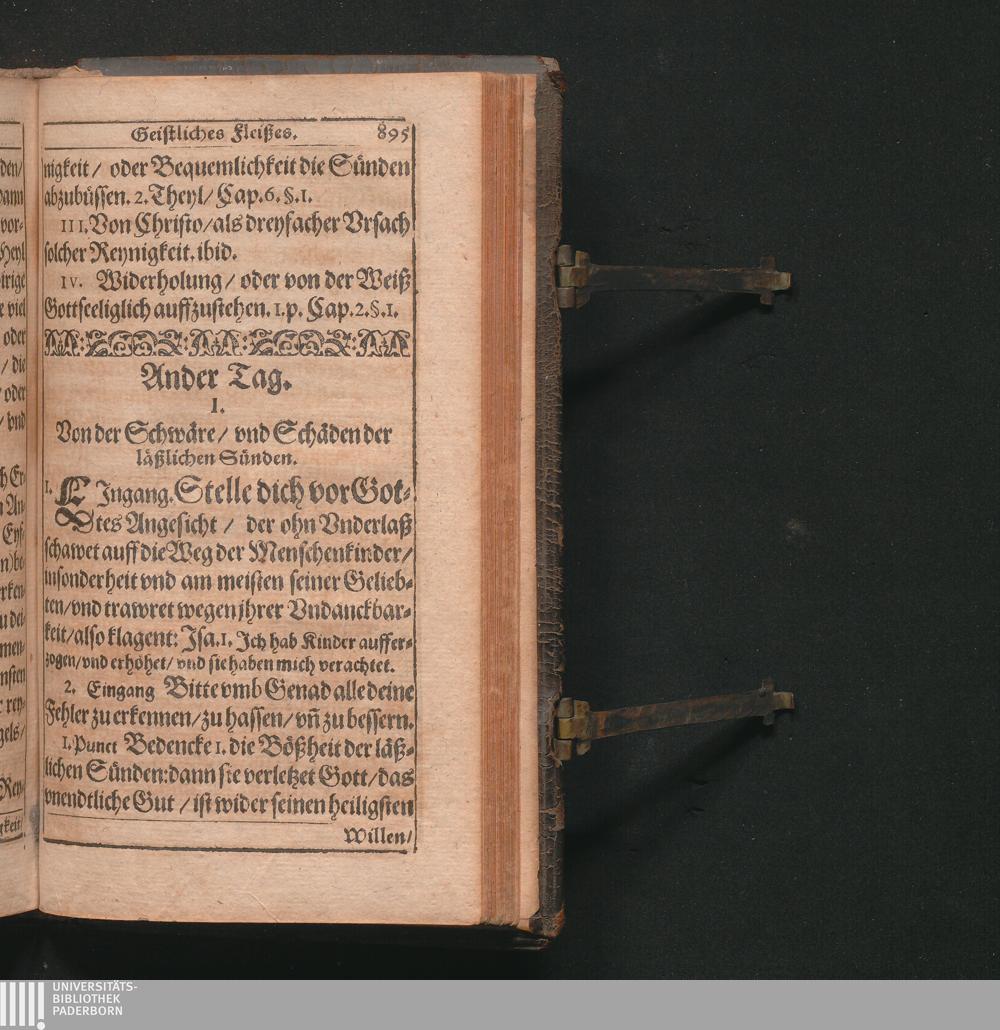 Geistliches Fleißes. 895
nigkeit / oder Bequemlichkeit die Sünden
abzubüssen. 2. Theyl / Cap. 6. §. 1.
III. Von Christo / als dreyfacher Vrsach
solcher Reynigkeit. ibid.
IV. Widerholung / oder von der Weiß
Gottseeliglich auffzustehen. 1. p. Cap. 2. §. 1.
Ander Tag.
I.
Von der Schwäre / vnd Schäden der
läßlichen Sünden.
1. EIngang. Stelle dich vor Got-
tes Angesicht / der ohn Vnderlaß
schawet auff die Weg der Menschenkinder /
insonderheit vnd am meisten seiner Gelieb-
ten / vnd trawret wegen jhrer Vndanckbar-
keit / also klagent: Jsa. 1. Jch hab Kinder auffer-
zogen / vnd erhöhet / vnd sie haben mich verachtet.
2. Eingang Bitte vmb Genad alle deine
Fehler zu erkennen / zu hassen / vñ zu bessern.
1. Punct Bedencke 1. die Bößheit der läß-
lichen Sünden: dann sie verletzet Gott / das
vnendtliche Gut / ist wider seinen heiligsten
Willen /
den /
dann
vor-
Heyl
irige
e viel
oder
/ die
oder
/ vnd
ch Er-
n An-
Eyf-
n) be-
erken-
u dei-
men-
nsten
r rey-
gels /
Rey-
gkeit /
UNIVERSITÄTS-
BIBLIOTHEK
PADERBORN